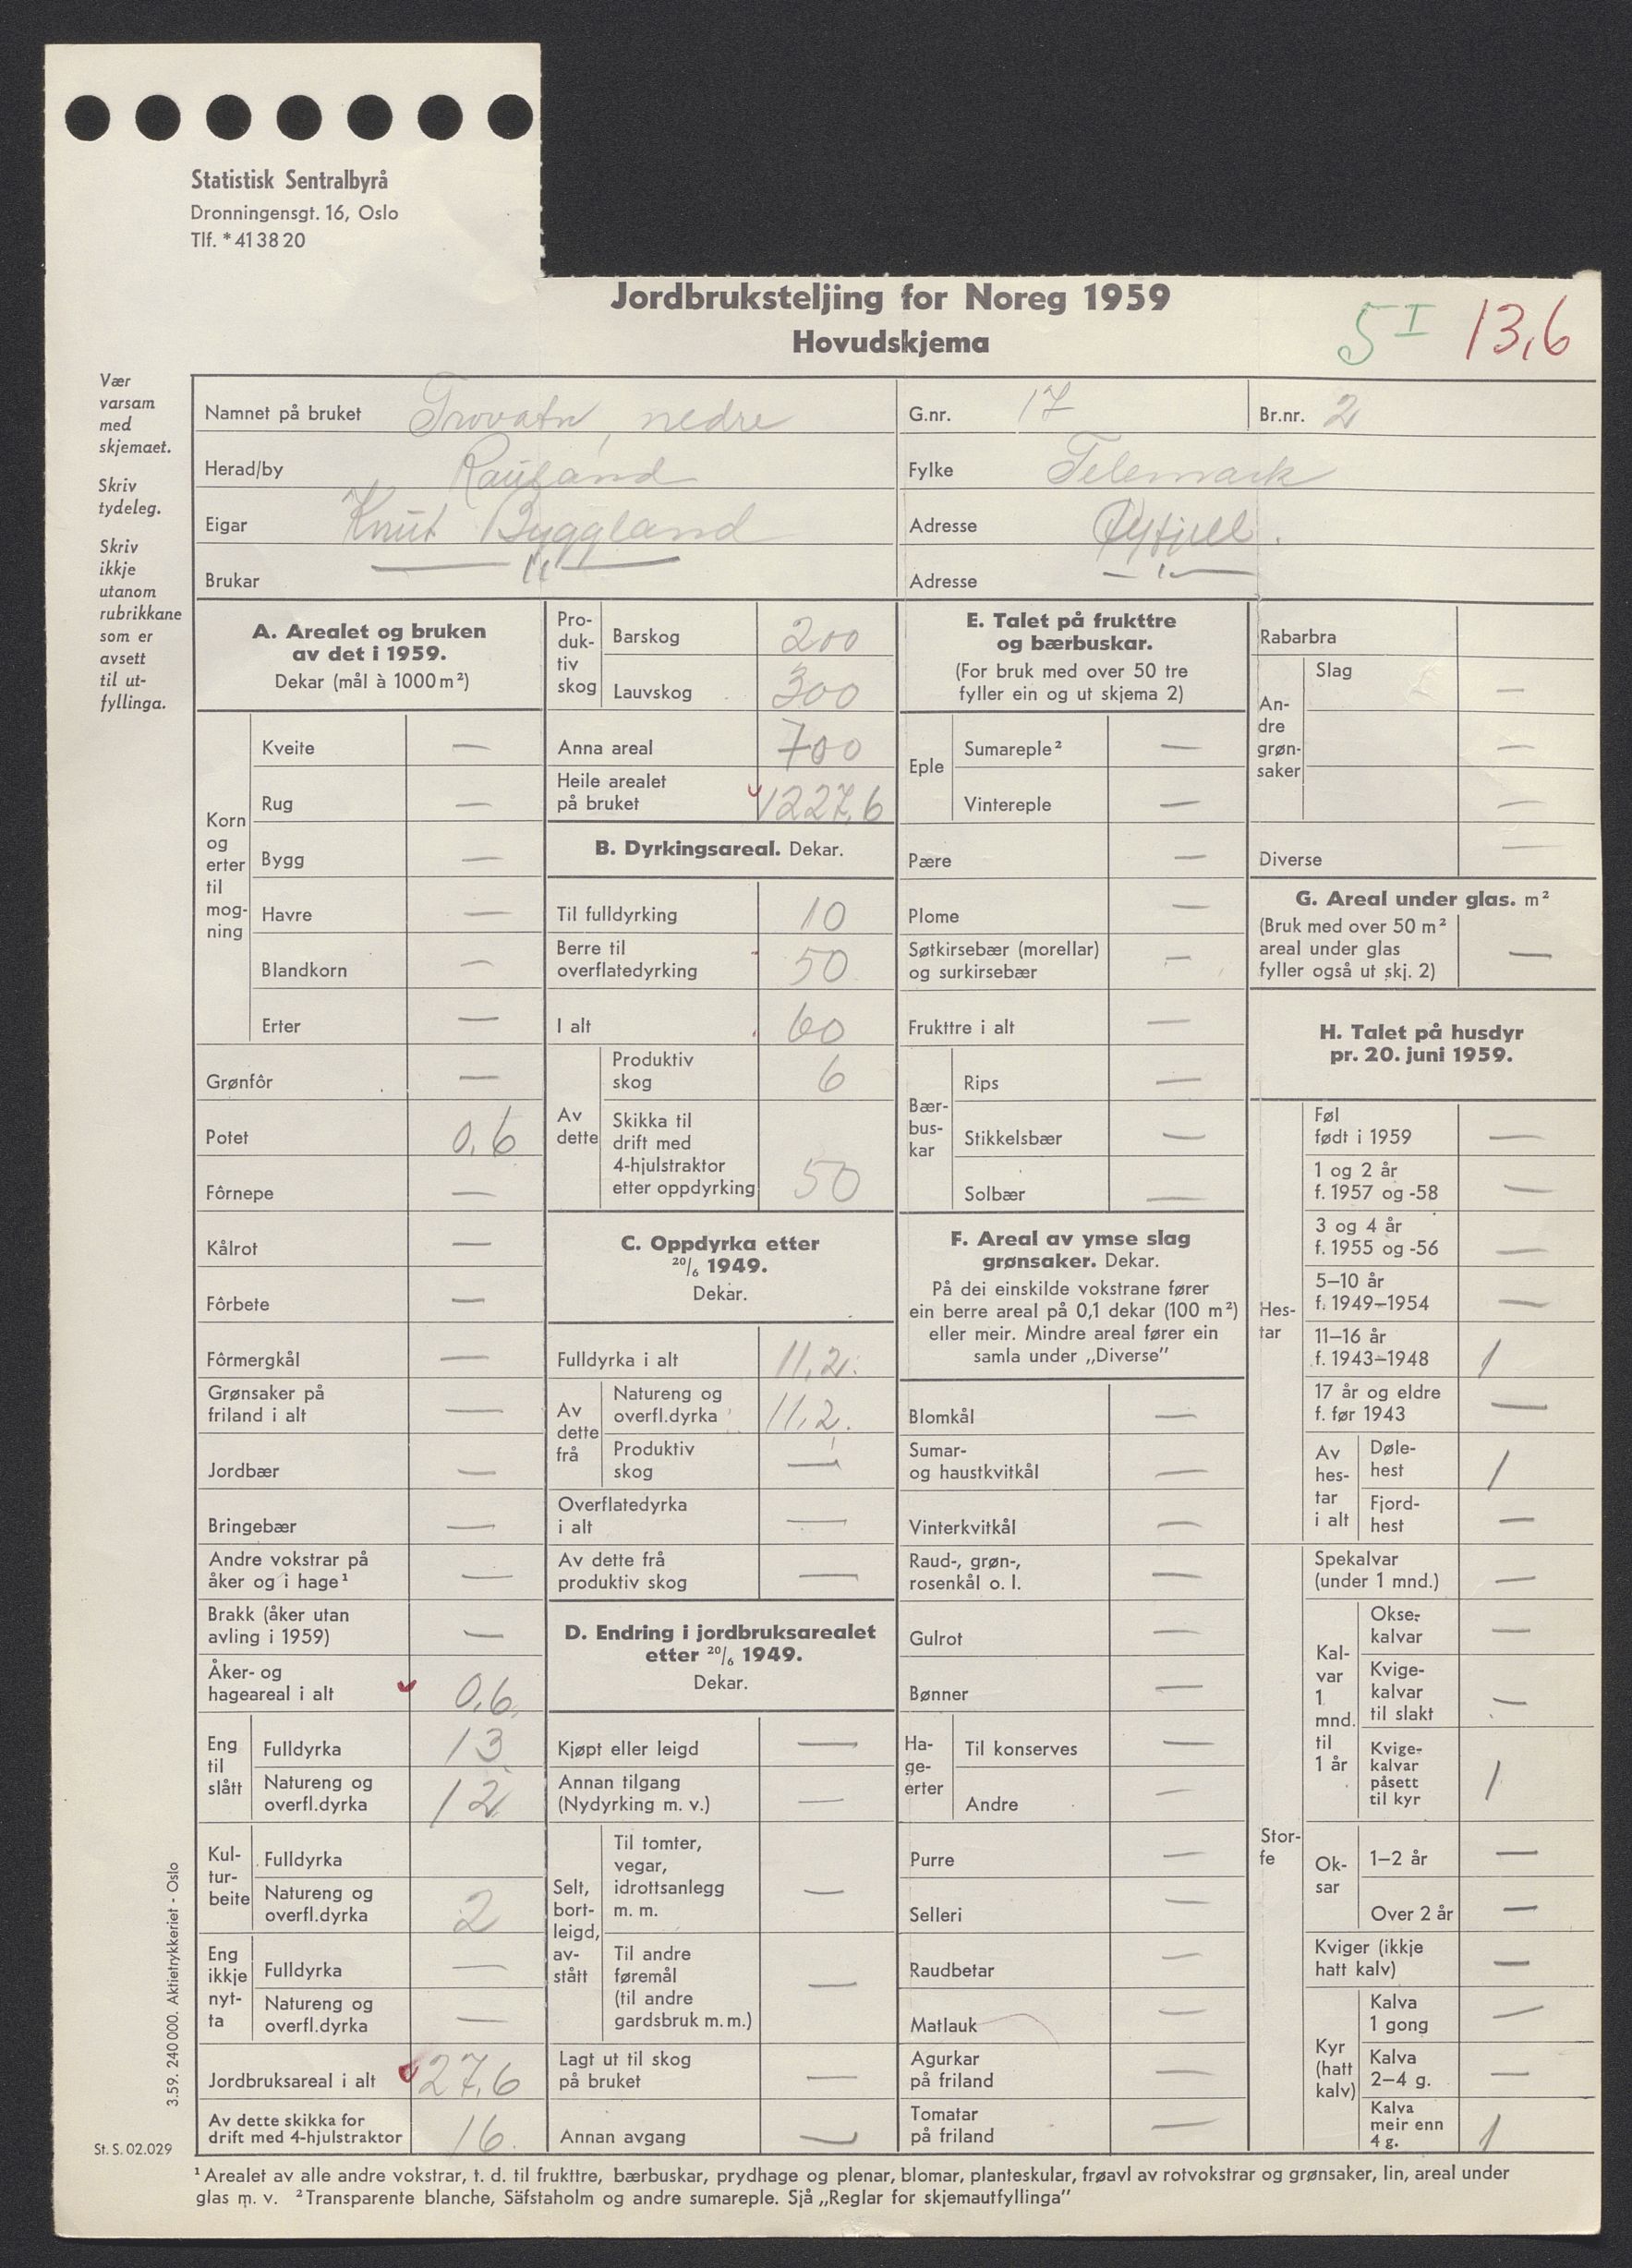 Statistisk Sentralbyrå
Dronningensgt. 16, Oslo
Tlf. * 41 38 20
Jordbruksteljing for Noreg 1959
Hovudskjema
5 I 13,6
Vær
varsam
med
skjemaet.
Skriv
tydeleg.
Skriv
ikkje
utanom
rubrikkane
som er
avsett
til ut-
fyllinga.
Namnet på bruket Trovatn, nedre G.nr. 17 Br.nr. 2
Herad/by Rauland Fylke Telemark
Eigar Knut Byggland Adresse Øyfjell.
Brukar — " — Adresse — " —
A. Arealet og bruken
av det i 1959.
Dekar (mål à 1000 m²)
Korn
og
erter
til
mog-
ning
Kveite —
Rug —
Bygg —
Havre —
Blandkorn —
Erter —
Grønfôr —
Potet 0,6
Fôrnepe —
Kålrot —
Fôrbete —
Fôrmergkål —
Grønsaker på
friland i alt —
Jordbær —
Bringebær —
Andre vokstrar på
åker og i hage¹ —
Brakk (åker utan
avling i 1959) —
Åker- og
hageareal i alt 0,6
Eng
til
slått
Fulldyrka 13
Natureng og
overfl.dyrka 12
Kul-
tur-
beite
Fulldyrka
Natureng og
overfl.dyrka 2
Eng
ikkje
nyt-
ta
Fulldyrka —
Natureng og
overfl.dyrka —
Jordbruksareal i alt 27,6
Av dette skikka for
drift med 4-hjulstraktor 16.
Pro-
duk-
tiv
skog
Barskog 200
Lauvskog 300
Anna areal 700
Heile arealet
på bruket 1227,6
B. Dyrkingsareal. Dekar.
Til fulldyrking 10
Berre til
overflatedyrking 50
I alt 60
Av
dette
Produktiv
skog 6
Skikka til
drift med
4-hjulstraktor
etter oppdyrking 50
C. Oppdyrka etter
20/6 1949.
Dekar.
Fulldyrka i alt 11,2.
Av
dette
frå
Natureng og
overfl.dyrka 11,2.
Produktiv
skog —
Overflatedyrka
i alt —
Av dette frå
produktiv skog —
D. Endring i jordbruksarealet
etter 20/6 1949.
Dekar.
Kjøpt eller leigd —
Annan tilgang
(Nydyrking m. v.) —
Selt,
bort-
leigd,
av-
stått
Til tomter,
vegar,
idrottsanlegg
m. m. —
Til andre
føremål
(til andre
gardsbruk m. m.) —
Lagt ut til skog
på bruket —
Annan avgang —
E. Talet på frukttre
og bærbuskar.
(For bruk med over 50 tre
fyller ein og ut skjema 2)
Eple
Sumareple² —
Vintereple —
Pære —
Plome —
Søtkirsebær (morellar)
og surkirsebær —
Frukttre i alt —
Bær-
bus-
kar
Rips —
Stikkelsbær —
Solbær —
F. Areal av ymse slag
grønsaker. Dekar.
På dei einskilde vokstrane fører
ein berre areal på 0,1 dekar (100 m²)
eller meir. Mindre areal fører ein
samla under „Diverse”
Blomkål —
Sumar-
og haustkvitkål —
Vinterkvitkål —
Raud-, grøn-,
rosenkål o. l. —
Gulrot —
Bønner —
Ha-
ge-
erter
Til konserves —
Andre —
Purre —
Selleri —
Raudbetar —
Matlauk —
Agurkar
på friland —
Tomatar
på friland —
Rabarbra
An-
dre
grøn-
saker
Slag
—
—
—
Diverse —
G. Areal under glas. m²
(Bruk med over 50 m²
areal under glas
fyller også ut skj. 2) —
H. Talet på husdyr
pr. 20. juni 1959.
Hes-
tar
Føl
født i 1959 —
1 og 2 år
f. 1957 og -58 —
3 og 4 år
f. 1955 og -56 —
5–10 år
f. 1949–1954 —
11–16 år
f. 1943–1948 1
17 år og eldre
f. før 1943 —
Av
hes-
tar
i alt
Døle-
hest 1
Fjord-
hest —
Stor-
fe
Spekalvar
(under 1 mnd.) —
Kal-
var
1
mnd.
til
1 år
Okse-
kalvar —
Kvige-
kalvar
til slakt —
Kvige-
kalvar
påsett
til kyr 1
Ok-
sar
1–2 år —
Over 2 år —
Kviger (ikkje
hatt kalv) —
Kyr
(hatt
kalv)
Kalva
1 gong —
Kalva
2–4 g. —
Kalva
meir enn
4 g. 1
3.59. 240 000. Aktietrykkeriet - Oslo
St. S. 02.029
¹ Arealet av alle andre vokstrar, t. d. til frukttre, bærbuskar, prydhage og plenar, blomar, planteskular, frøavl av rotvokstrar og grønsaker, lin, areal under
glas m. v. ² Transparente blanche, Säfstaholm og andre sumareple. Sjå „Reglar for skjemautfyllinga”